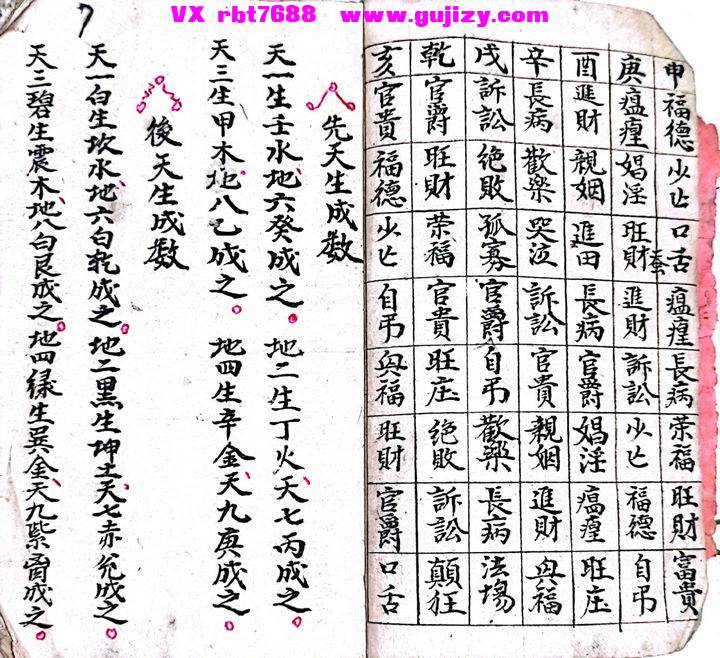 VX rbt7688 www.gujizy.com
申 福德 少亡 口舌 瘟瘴 長病 荣福 旺財 富貴
庚 瘟瘴 娼淫 旺財 進財 訴訟 少亡 福德 自弔
酉 進財 親姻 進田 長病 官爵 娼淫 瘟瘴 旺庄
辛 長病 歡樂 哭泣 訴訟 官貴 親姻 進財 興福
戌 訴訟 絶敗 孤寡 官爵 自弔 歡樂 長病 法場
乾 官爵 旺財 荣福 官貴 旺庄 絶敗 訴訟 顛狂
亥 官貴 福德 少亡 自弔 興福 旺財 官爵 口舌
先天生成数
天一生壬水地六癸成之 地二生丁火天七丙成之
天三生甲木地八乙成之 地四生辛金天九庚成之
後天生成数
天一白生坎水地六白乾成之 地二黑生坤土天七赤兌成之
天三碧生震木地八白艮成之 地四绿生巽金天九紫离成之